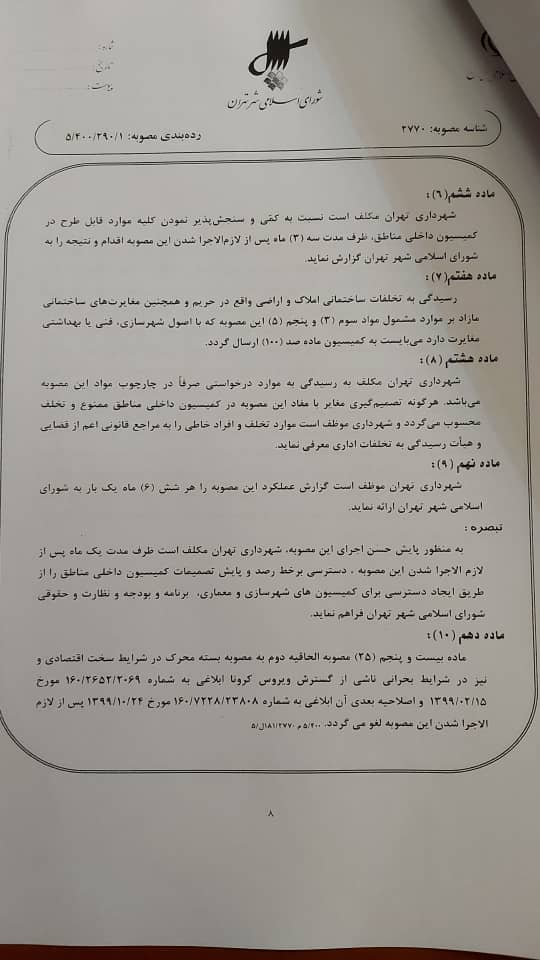 شماره:
تاریخ:
پیوست:
شورای اسلامی شهر تهران
شناسه مصوبه: ۲۷۷۰
رده‌بندی مصوبه: ۵/۴۰۰/۲۹۰/۱
ماده ششم(۶):
شهرداری تهران مکلف است نسبت به کمّی و سنجش‌پذیر نمودن کلیه موارد قابل طرح در
کمیسیون داخلی مناطق، ظرف مدت سه (۳) ماه پس از لازم‌الاجرا شدن این مصوبه اقدام و نتیجه را به
شورای اسلامی شهر تهران گزارش نماید.
ماده هفتم(۷):
رسیدگی به تخلفات ساختمانی املاک و اراضی واقع در حریم و همچنین مغایرت‌های ساختمانی
مازاد بر موارد مشمول مواد سوم (۳) و پنجم (۵) این مصوبه که با اصول شهرسازی، فنی یا بهداشتی
مغایرت دارد می‌بایست به کمیسیون ماده صد (۱۰۰) ارسال گردد.
ماده هشتم (۸):
شهرداری تهران مکلف به رسیدگی به موارد درخواستی صرفاً در چارچوب مواد این مصوبه
می‌باشد. هرگونه تصمیم‌گیری مغایر با مفاد این مصوبه در کمیسیون داخلی مناطق ممنوع و تخلف
محسوب می‌گردد و شهرداری موظف است موارد تخلف و افراد خاطی را به مراجع قانونی اعم از قضایی
و هیأت رسیدگی به تخلفات اداری معرفی نماید.
ماده نهم (۹):
شهرداری تهران موظف است گزارش عملکرد این مصوبه را هر شش (۶) ماه یک بار به شورای
اسلامی شهر تهران ارائه نماید.
تبصره :
به منظور پایش حسن اجرای این مصوبه، شهرداری تهران مکلف است ظرف مدت یک ماه پس از
لازم الاجرا شدن این مصوبه ، دسترسی برخط رصد و پایش تصمیمات کمیسیون داخلی مناطق را از
طریق ایجاد دسترسی برای کمیسیون های شهرسازی و معماری، برنامه و بودجه و نظارت و حقوقی
شورای اسلامی شهر تهران فراهم نماید.
ماده دهم (۱۰):
ماده بیست و پنجم (۲۵) مصوبه الحاقیه دوم به مصوبه بسته محرک در شرایط سخت اقتصادی و
نیز در شرایط بحرانی ناشی از گسترش ویروس کرونا ابلاغی به شماره ۱۶۰/۲۶۵۲/۲۰۶۹ مورخ
۱۳۹۹/۰۲/۱۵ و اصلاحیه بعدی آن ابلاغی به شماره ۱۶۰/۷۲۲۸/۲۳۸۰۸ مورخ ۱۳۹۹/۱۰/۲۴ پس از لازم
الاجرا شدن این مصوبه لغو می گردد. ۵/۴۰۰ م ۱۸۱/۲۷۷۰ل/۵
۸